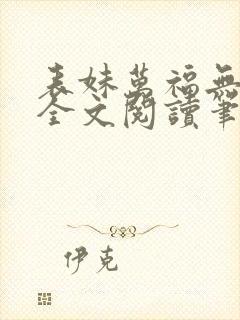 表妹萬福無
全文閱讀筆
伊克